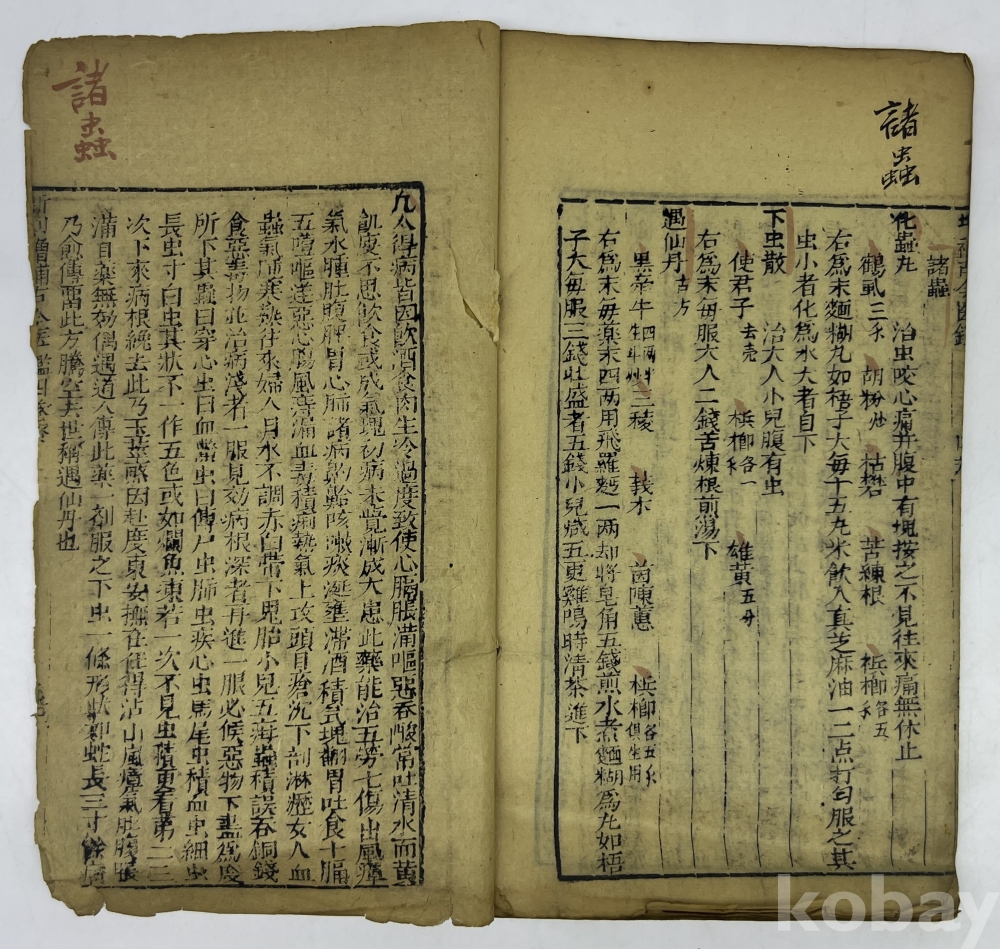 諸蟲
諸蟲
化蟲丸 治虫咬心痛并腹中有塊按之不見往來痛無休止
鶴虱三 胡粉炒 枯礬 苦練根 梹榔各五
右爲末麵糊丸如梧子大每十五丸米飲入真芝麻油一二点打匀服之其
虫小者化爲水大者自下
下虫散 治大人小児腹有虫
使君子去壳 梹榔各一 雄黃五分
右爲末每服大人二錢苦煉根煎湯下
遇仙丹古方
黒牽牛四兩 三稜 莪朮 茵陳 梹榔各五 俱生用
右爲末每藥末四兩用飛羅麪一兩却將皂角五錢煎水煮麵糊爲丸如梧
子大每服三錢壯盛者五錢小兒減五更雞鳴時清茶進下
諸蟲
凡人得病皆因飲酒食肉生冷過度致使心膈脹滿嘔惡吞酸常吐清水面黃
飢瘦不思飲食或成氣塊初病未覺漸成大患此藥能治五勞七傷山嵐瘴
氣水腫肚腹脾胃心肺諸病齁䶎咳嗽痰涎壅滯酒積氣塊翻胃吐食十膈
五噎嘔逆惡心腸風痔漏血毒積痢熱氣上攻頭目瘡 下部淋瀝女人血
蟲氣 寒熱往來婦人月水不調赤白帶下鬼胎小兒五 蟲積誤吞銅錢
食惡毒物並治病淺者一服見効病根深者再進一服必候惡物下盡爲度
所下其蟲曰穿心虫曰血鱉虫曰傳尸虫肺虫疾心虫馬尾虫積血虫細虫
長虫寸白虫其狀不一作五色或如爛魚凍若一次不見虫積更看第二三
次下來病根纔去此乃玉 因赴度東安 往任得沾山嵐瘴氣肚腹脹
滿百藥無効偶遇道人傳此藥一剤服之下虫一條形狀如蛇長三寸餘
乃愈傳留此方騰空去世稱遇仙丹也